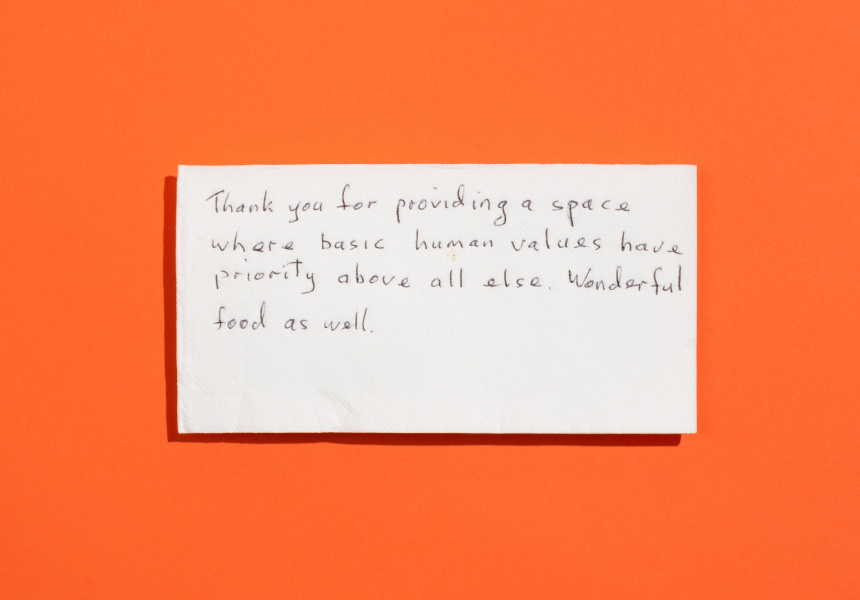 Thank you for providing a space
where basic human values have
priority above all else. Wonderful
food as well.